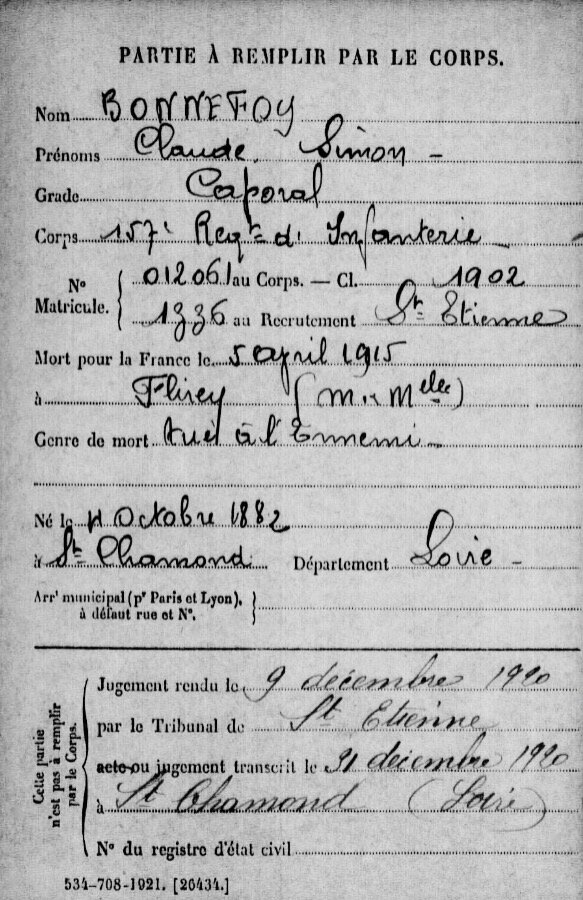 PARTIE À REMPLIR PAR LE CORPS.
Nom BONNEFOY
Prénoms Claude Simon -
Grade Caporal
Corps 157e Regt d' Infanterie -
N° Matricule. { 012061 au Corps. — Cl. 1902
1336 au Recrutement St Etienne
Mort pour la France le 5 april 1915
à Flirey (M. et Melle)
Genre de mort tué à l'Ennemi -
Né le Octobre 1882
à St Chamond Département Loire -
Arrt municipal (pr Paris et Lyon), }
à défaut rue et N°.
Cette partie n'est pas à remplir par le Corps.
Jugement rendu le 9 décembre 1920
par le Tribunal de St Etienne
acte ou jugement transcrit le 31 décembre 1920
à St Chamond (Loire)
N° du registre d'état civil
534-708-1921. [26434.]